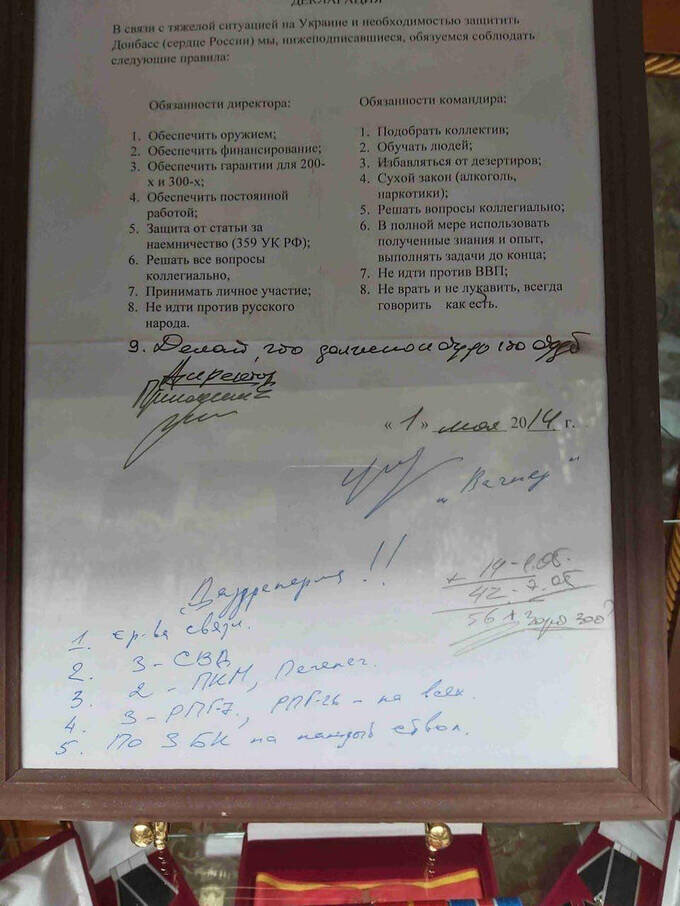 ДЕКЛАРАЦИЯ
В связи с тяжелой ситуацией на Украине и необходимостью защитить
Донбасс (сердце России) мы, нижеподписавшиеся, обязуемся соблюдать
следующие правила:
Обязанности директора:
1. Обеспечить оружием;
2. Обеспечить финансирование;
3. Обеспечить гарантии для 200-
х и 300-х;
4. Обеспечить постоянной
работой;
5. Защита от статьи за
наемничество (359 УК РФ);
6. Решать все вопросы
коллегиально,
7. Принимать личное участие;
8. Не идти против русского
народа.
Обязанности командира:
1. Подобрать коллектив;
2. Обучать людей;
3. Избавляться от дезертиров;
4. Сухой закон (алкоголь,
наркотики);
5. Решать вопросы коллегиально;
6. В полной мере использовать
полученные знания и опыт,
выполнять задачи до конца;
7. Не идти против ВВП;
8. Не врать и не лукавить, всегда
говорить как есть.
9. Делай, что должно и будь что будет
Директор
Пригожин Е
«1» мая 2014 г.
„Вагнер“
!!
1. ср-ва связи.
2. 3-СВД
3. 2-ПКМ, Печенег.
4. 3-РПГ-7, РПГ-26 - на всех.
5. По 3 БК на каждый ствол.
14-
42-
56